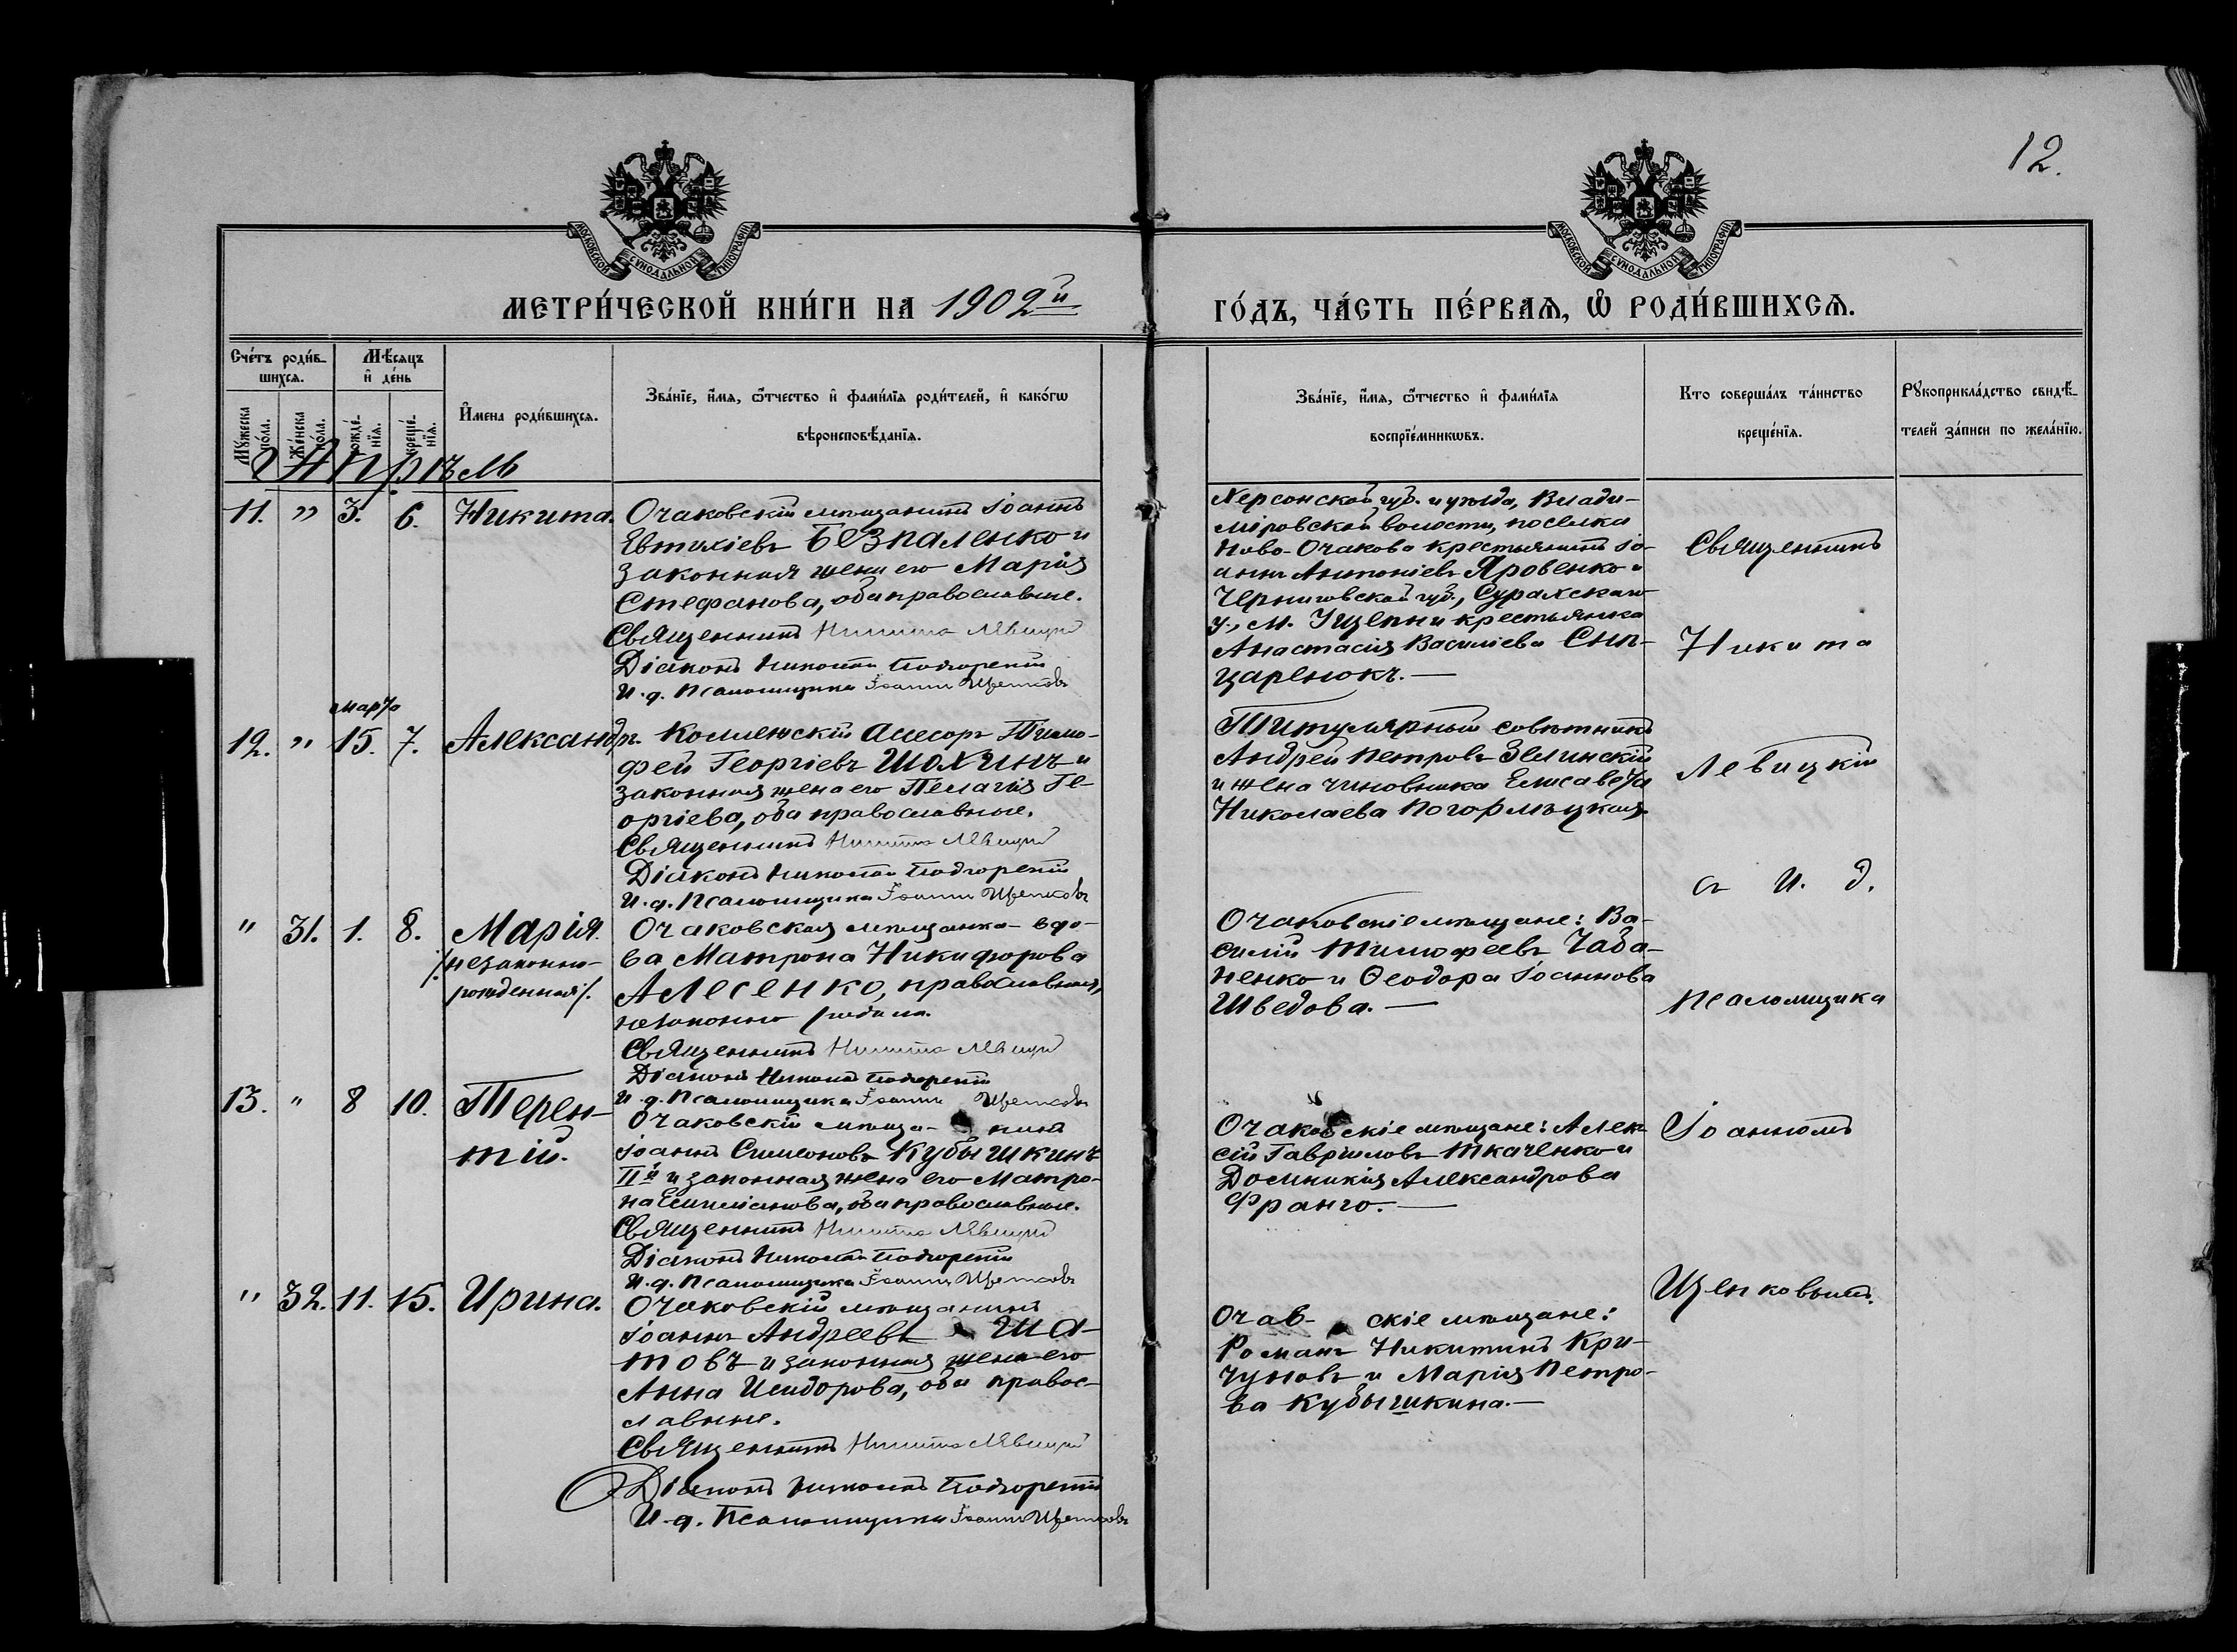 12.
МОСКОВСКОЙ СѴНОДАЛЬНОЙ ТИПОГРАФІИ
МОСКОВСКОЙ СѴНОДАЛЬНОЙ ТИПОГРАФІИ
МЕТРИ́ЧЕСКОЙ КНИ́ГИ НА 1902й
ГО́ДЪ, ЧА́СТЬ ПЕ́РВАѦ, Ѽ РОДИ́ВШИХСѦ.
Сче́тъ роди́в-
шихсѧ.
Мѣ́сѧцъ
и҆ де́нь
Мꙋ́жеска по́ла.
Же́нска по́ла.
рожде́-
нїѧ.
креще́-
нїѧ.
И҆мена роди́вшихсѧ.
Зва́нїе, и҆́мѧ, ѻ҆́тчество и҆ фами́лїѧ роди́телей, и҆ како́гѡ
вѣроисповѣ́данїѧ.
Зва́нїе, и҆́мѧ, ѻ҆́тчество и҆ фами́лїѧ
воспрїе́мникѡвъ.
Кто соверша́лъ та́инство
креще́нїѧ.
Рꙋкоприкла́дство свидѣ́-
телей за́писи по жела́нїю.
Апрѣль
11. " 3. 6. Никита.
Очаковскій мѣщанинъ Іоаннъ
Евтихіевъ Безпаленко и
законная жена его Марія
Стефанова, оба православные.
Священникъ Никита Левицкій
Діаконъ Николай
И. д. Псаломщика Іоаннъ Щенковъ
Херсонской губ. и уѣзда, Влади-
міровской волости, поселка
Ново-Очакова крестьянинъ Іо-
аннъ Антоніевъ Яровенко и
Черниговской губ., Суражскаго
у., м. крестьянка
Анастасія Василіева
царенокъ. —
Священникъ
Никита
Левицкій
съ И. д.
псаломщика
Іоанномъ
Щенковымъ.
марта
12. " 15. 7. Александръ.
Коллежскій Асесоръ Тимо-
фей Георгіевъ Шохинъ и
законная жена его Пелагія Ге-
оргіева, оба православные.
Священникъ Никита Левицкій
Діаконъ Николай
И. д. Псаломщика Іоаннъ Щенковъ
Титулярный совѣтникъ
Андрей Петровъ Зелинскій
и жена чиновника Елисавета
Николаева Погорѣлецкая.
" 31. 1. 8. Марія.
/незаконно-
рожденная/.
Очаковская мѣщанка - вдо-
ва Матрона Никифорова
Алесенко, православная,
незаконно родила.
Священникъ Никита Левицкій
Діаконъ Николай
И. д. Псаломщика Іоаннъ Щенковъ
Очаковскіе мѣщане: Ва-
силій Тимофеевъ Чаба-
ненко и Ѳеодора Іоаннова
Шведова. —
13. " 8 10. Терен-
тій.
Очаковскій мѣща- нинъ
Іоаннъ Симеоновъ Кубышкинъ
IIй и законная жена его Матро-
на Емиліанова, оба православные.
Священникъ Никита Левицкій
Діаконъ Николай
И. д. Псаломщика Іоаннъ Щенковъ
Очаковскіе мѣщане: Алек-
сій Гавриловъ Ткаченко и
Домникія Александрова
Франго. —
" 32. 11. 15. Ирина.
Очаковскій мѣщанинъ
Іоаннъ Андреевъ Ша-
товъ и законная жена его
Анна Исидорова, оба правос-
лавные.
Священникъ Никита Левицкій
Діаконъ Николай
И. д. Псаломщика Іоаннъ Щенковъ
Очав- скіе мѣщане:
Романъ Никитинъ Кри-
чуновъ и Марія Петро-
ва Кубышкина. —